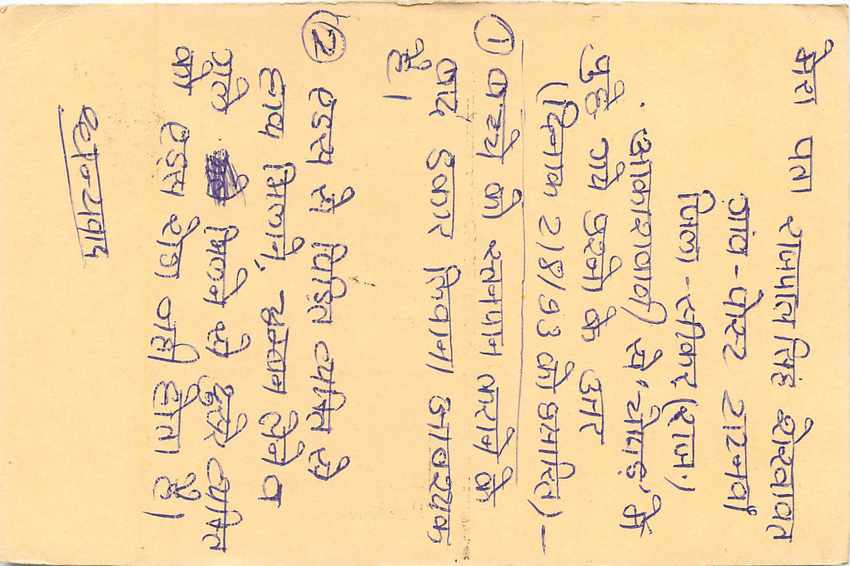 मेरा पता रामपाल सिंह शेखावत
गांव - पोस्ट
जिला - सीकर (राज.)
आकाशवाणी से में
पुछे गये प्रश्नों के उत्तर
(दिनांक 2/8/93 को प्रसारित) –
① बच्चे को स्तनपान कराने के
बाद डकार दिलाना आवश्यक
है।
② एडस से पिडित व्यक्ति से
हाथ मिलाने, चुम्बन लेने व
गले मिलने से दुसरे व्यक्ति
को एडस रोग नही होता है।
धन्यवाद